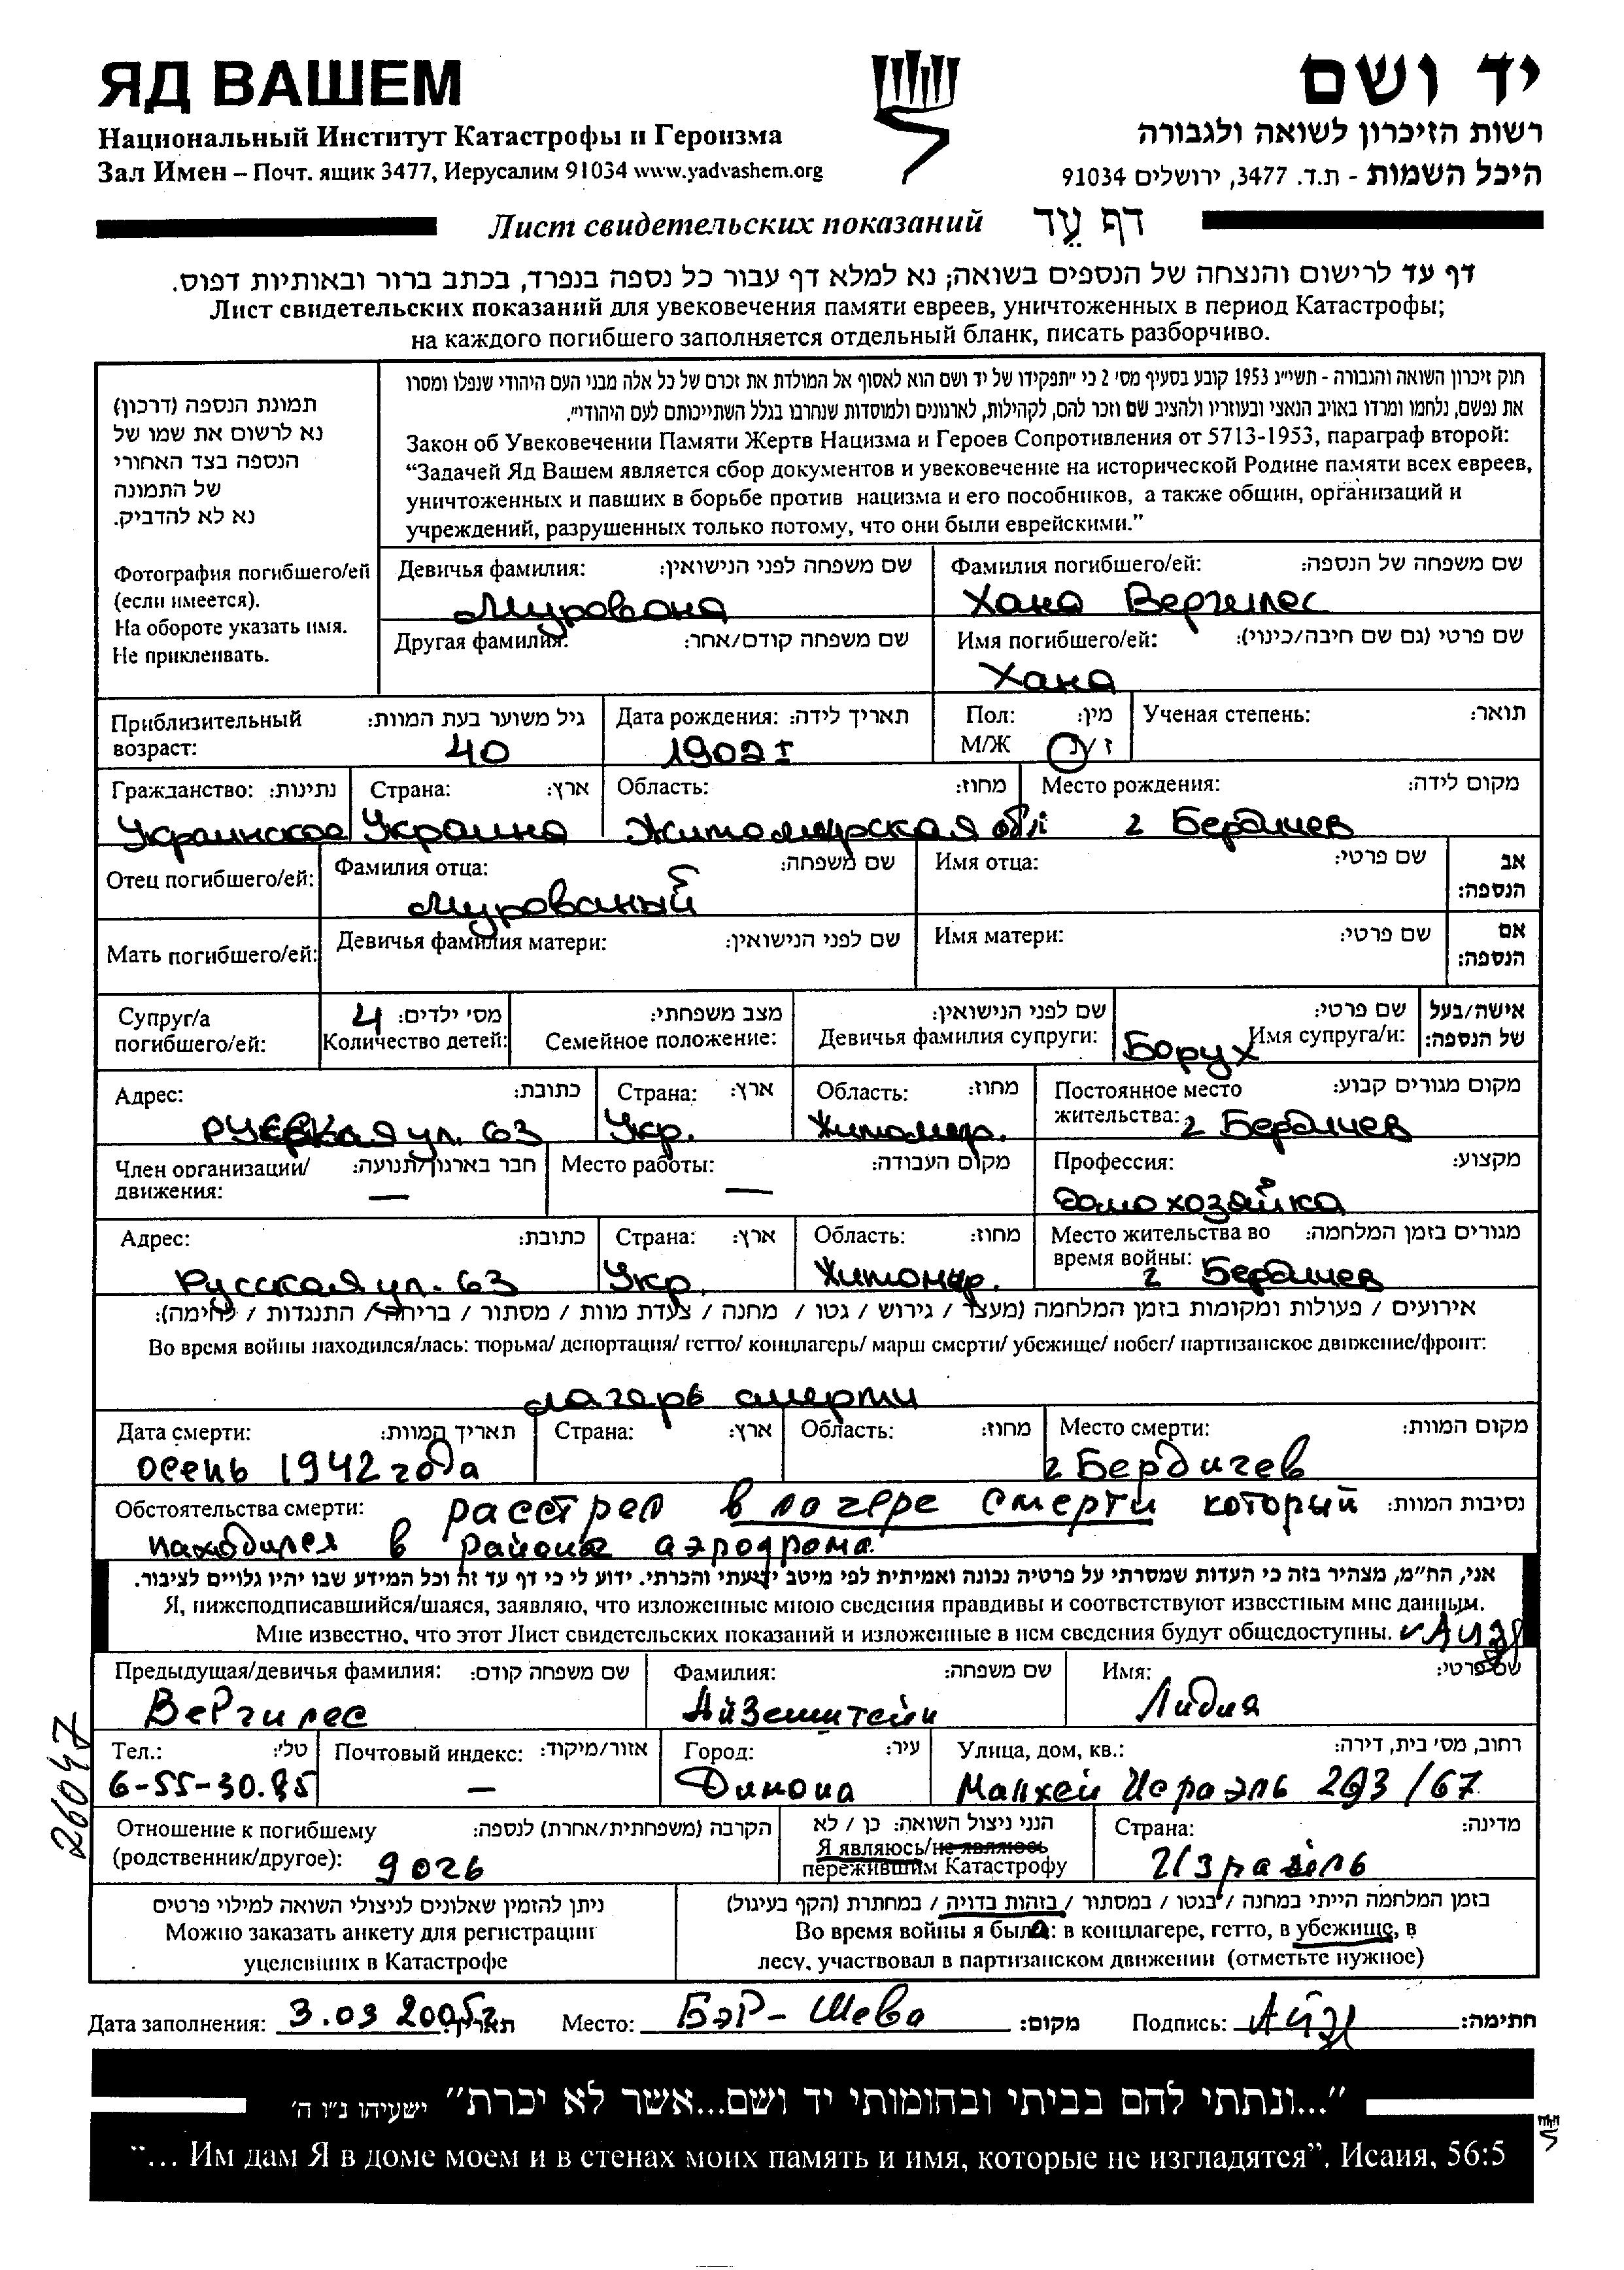 ЯД ВАШЕМ
יד ושם
Национальный Институт Катастрофы и Героизма
רשות הזיכרון לשואה ולגבורה
Зал Имен – Почт. ящик 3477, Иерусалим 91034 www.yadvashem.org
היכל השמות - ת.ד. 3477, ירושלים 91034
Лист свидетельских показаний דף עֵד
דף עד לרישום והנצחה של הנספים בשואה; נא למלא דף עבור כל נספה בנפרד, בכתב ברור ובאותיות דפוס.
Лист свидетельских показаний для увековечения памяти евреев, уничтоженных в период Катастрофы;
на каждого погибшего заполняется отдельный бланк, писать разборчиво.
תמונת הנספה (דרכון)
נא לרשום את שמו של
הנספה בצד האחורי
של התמונה
נא לא להדביק.
Фотография погибшего/ей
(если имеется).
На обороте указать имя.
Не приклеивать.
חוק זיכרון השואה והגבורה - תשי״ג 1953 קובע בסעיף מס׳ 2 כי ״תפקידו של יד ושם הוא לאסוף אל המולדת את זכרם של כל אלה מבני העם היהודי שנפלו ומסרו
את נפשם, נלחמו ומרדו באויב הנאצי ובעוזריו ולהציב שם וזכר להם, לקהילות, לארגונים ולמוסדות שנחרבו בגלל השתייכותם לעם היהודי״.
Закон об Увековечении Памяти Жертв Нацизма и Героев Сопротивления от 5713-1953, параграф второй:
“Задачей Яд Вашем является сбор документов и увековечение на исторической Родине памяти всех евреев,
уничтоженных и павших в борьбе против нацизма и его пособников, а также общин, организаций и
учреждений, разрушенных только потому, что они были еврейскими.”
Девичья фамилия: שם משפחה לפני הנישואין: Фамилия погибшего/ей: שם משפחה של הנספה:
Мурована Хана Вергилес
Другая фамилия: שם משפחה קודם/אחר: Имя погибшего/ей: שם פרטי (גם שם חיבה/כינוי):
Хана
Приблизительный גיל משוער בעת המוות: Дата рождения: תאריך לידה: Пол: מין: Ученая степень: תואר:
возраст: 40 1902г М/Ж ז / נ
Гражданство: נתינות: Страна: ארץ: Область: מחוז: Место рождения: מקום לידה:
Украинское Украина Житомирская обл г Бердичев
Отец погибшего/ей: Фамилия отца: שם משפחה: Имя отца: שם פרטי: אב הנספה:
Мурованый
Мать погибшего/ей: Девичья фамилия матери: שם לפני הנישואין: Имя матери: שם פרטי: אם הנספה:
Супруг/а 4 מס׳ ילדים: מצב משפחתי: שם לפני הנישואין: שם פרטי: אישה/בעל
погибшего/ей: Количество детей: Семейное положение: Девичья фамилия супруги: Борух Имя супруга/и: של הנספה:
Адрес: כתובת: Страна: ארץ: Область: מחוז: Постоянное место מקום מגורים קבוע:
Русская ул. 63 Укр. Житомир. жительства: г Бердичев
Член организации/ חבר בארגון/תנועה: Место работы: מקום העבודה: Профессия: מקצוע:
движения: — — домохозяйка
Адрес: כתובת: Страна: ארץ: Область: מחוז: Место жительства во מגורים בזמן המלחמה:
Русская ул. 63 Укр. Житомир. время войны: г Бердичев
אירועים / פעולות ומקומות בזמן המלחמה (מעצר / גירוש / גטו / מחנה / צעדת מוות / מסתור / בריחה / התנגדות / לחימה):
Во время войны находился/лась: тюрьма/ депортация/ гетто/ концлагерь/ марш смерти/ убежище/ побег/ партизанское движение/фронт:
лагерь смерти
Дата смерти: תאריך המוות: Страна: ארץ: Область: מחוז: Место смерти: מקום המוות:
осень 1942 года г Бердичев
Обстоятельства смерти: расстрел в лагере смерти который נסיבות המוות:
находился в районе аэродрома.
אני, הח״מ, מצהיר בזה כי העדות שמסרתי על פרטיה נכונה ואמיתית לפי מיטב ידיעתי והכרתי. ידוע לי כי דף עד זה וכל המידע שבו יהיו גלויים לציבור.
Я, нижсподписавшийся/шаяся, заявляю, что изложенные мною сведения правдивы и соответствуют известным мне данным.
Мне известно, что этот Лист свидетельских показаний и изложенные в нем сведения будут общедоступны.
Предыдущая/девичья фамилия: שם משפחה קודם: Фамилия: שם משפחה: Имя: שם פרטי:
Вергилес Айзенштейн Лидия
Тел.: טל׳: Почтовый индекс: אזור/מיקוד: Город: עיר: Улица, дом, кв.: רחוב, מס׳ בית, דירה:
6-55-30.85 — Димона Малхей Исраэль 293/67
26047
Отношение к погибшему הקרבה (משפחתית/אחרת) לנספה: הנני ניצול השואה: כן / לא Страна: מדינה:
(родственник/другое): дочь Я являюсь/не являюсь
пережившим Катастрофу Израиль
ניתן להזמין שאלונים לניצולי השואה למילוי פרטים
Можно заказать анкету для регистрации
уцелевших в Катастрофе
בזמן המלחמה הייתי במחנה / בגטו / במסתור / בזהות בדויה / במחתרת (הקף בעיגול)
Во время войны я была: в концлагере, гетто, в убежище, в
лесу, участвовал в партизанском движении (отметьте нужное)
Дата заполнения: 3.03 2005г תאריך: Место: Бэр-Шева מקום: Подпись: חתימה:
״...ונתתי להם בביתי ובחומותי יד ושם...אשר לא יכרת״ ישעיהו נ״ו ה׳
“... Им дам Я в доме моем и в стенах моих память и имя, которые не изгладятся”. Исаия, 56:5